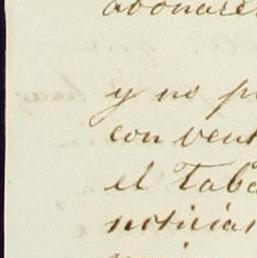 abonare
y no p
con vent
el Taba
noticias